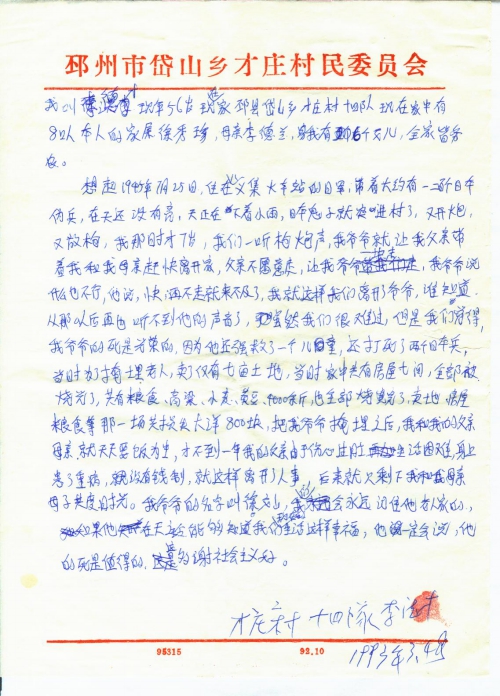 邳州市岱山乡才庄村民委员会
我叫 现年56岁 现 家 邳县岱山乡才庄村十四队 现在家中有
8口人 本人的家属徐秀珍，母亲李德兰，我有 6个女儿，全家皆务
农。
想起1945年7月25日，住在 集火车站的日军，带着大约有一 个日本
伪兵，在天还没有亮，天正在下着小雨，日本鬼子就 进村了，又开火炮，
又放枪，我那时才7岁，我们一听枪炮声，我爷爷就让我父亲带
着我和我母亲赶快离开家，父亲不愿意走，让我爷爷 ，我爷爷说
什么也不行，他说，快 再不走就来不及了，我就这样我们离开了爷爷，谁知道
从那以后再也听不到他的声音了， 虽然我们很难过，但是我们 觉得，
我爷爷的死是光荣的，因为他 救了一个儿童，还打死了两个日本兵，
当时为了掩埋老人，卖了仅有七亩土地，当时家中共有房屋七间，全部被
烧光了，共有粮食、高粱、小麦、黄豆、4000余斤，也全部烧光了，卖地、房屋
粮食等那一场共损失大洋800块，把我爷爷掩埋之后，我和我的父亲
母亲就天天要饭为生，才不到一年我的父亲由于伤心过度 生活困难，身上
患了重病，就没有钱治，就这样离开了人事，后来就只剩下我和我母亲
母子共度时光。我爷爷的名字叫徐 ，我 会永远记住他老人家的，
如果他 在天之灵能够知道我们 生活这样幸福，他 一定会说，他
的死是值得的， 感谢社会主义好。
才庄村十四队 李
1993年3.4号
95315
92.10